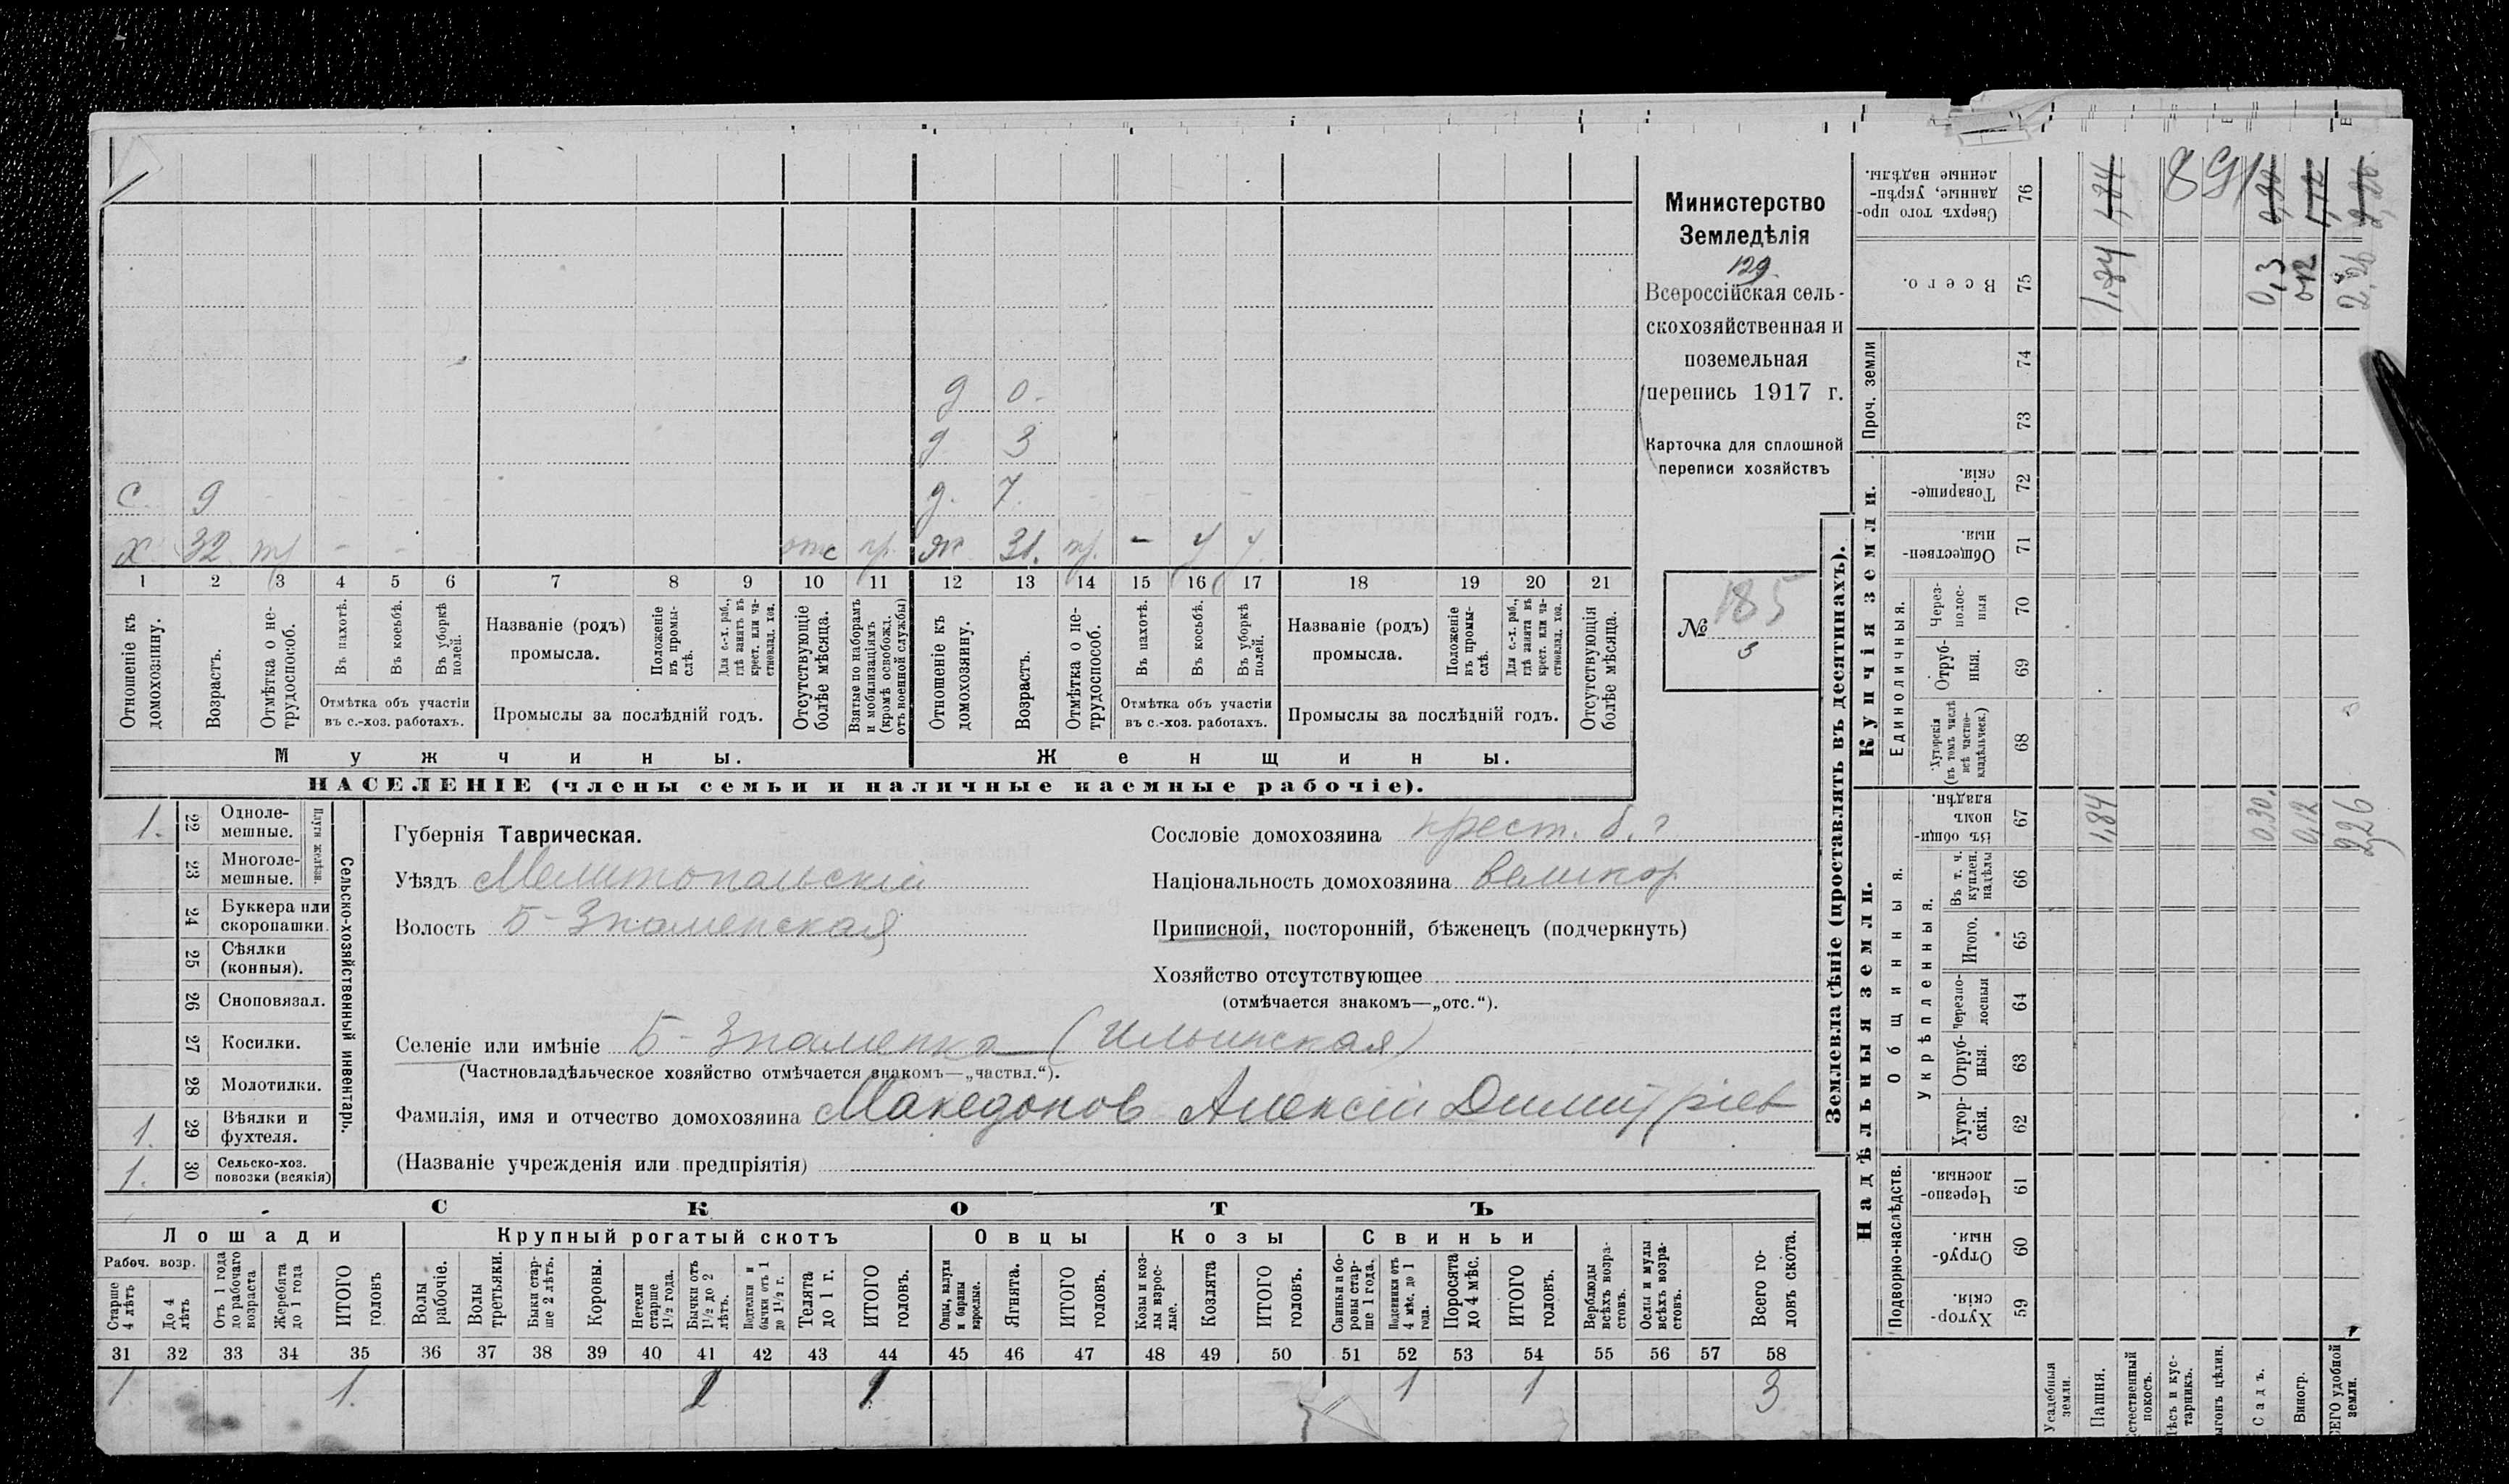 Министерство
Земледѣлія
129.
Всероссійская сель-
скохозяйственная и
поземельная
перепись 1917 г.
Карточка для сплошной
переписи хозяйствъ
№ 185
3
д 0.
д 3
С. 9 - - - - д. 7. - - - -
Х 32 тр - - отс пр. ж 31. пр. - у у.
1 2 3 4 5 6 7 8 9 10 11 12 13 14 15 16 17 18 19 20 21
Отношеніе къ домохозяину.
Возрастъ.
Отмѣтка о не-трудоспособ.
Въ пахотѣ.
Въ косьбѣ.
Въ уборкѣ полей.
Отмѣтка объ участіи въ с.-хоз. работахъ.
Названіе (родъ) промысла.
Положеніе въ промы-слѣ.
Для с.-х. раб., гдѣ занятъ въ крест. или ча-стновлад. хоз.
Промыслы за послѣдній годъ.
Отсутствующіе болѣе мѣсяца.
Взятые по наборамъ и мобилизаціямъ (кромѣ освобожд. отъ военной службы)
Отношеніе къ домохозяину.
Возрастъ.
Отмѣтка о не-трудоспособ.
Въ пахотѣ.
Въ косьбѣ.
Въ уборкѣ полей.
Отмѣтка объ участіи въ с.-хоз. работахъ.
Названіе (родъ) промысла.
Положеніе въ промы-слѣ.
Для с.-х. раб., гдѣ занята въ крест. или ча-стновлад. хоз.
Промыслы за послѣдній годъ.
Отсутствующія болѣе мѣсяца.
Мужчины. Женщины.
НАСЕЛЕНІЕ (члены семьи и наличные наемные рабочіе).
Сельско-хозяйственный инвентарь.
Плуги желѣзн.
1. 22 Одноле-мешные.
23 Многоле-мешные.
24 Буккера или скоропашки.
25 Сѣялки (конныя).
26 Сноповязал.
27 Косилки.
28 Молотилки.
1. 29 Вѣялки и фухтеля.
1. 30 Сельско-хоз. повозки (всякія)
Губернія Таврическая.
Уѣздъ Мелитопольскій
Волость Б-Знаменская
Сословіе домохозяина крест. б.?
Національность домохозяина великор
Приписной, посторонній, бѣженецъ (подчеркнуть)
Хозяйство отсутствующее
(отмѣчается знакомъ—„отс.“).
Селеніе или имѣніе Б-Знаменка (Ильинская)
(Частновладѣльческое хозяйство отмѣчается знакомъ—„частвл.“).
Фамилія, имя и отчество домохозяина Македонов Алексій Димитріев
(Названіе учрежденія или предпріятія)
СКОТЪ
Лошади Крупный рогатый скотъ Овцы Козы Свиньи
Рабоч. возр.
Старше 4 лѣтъ
До 4 лѣтъ
Отъ 1 года до рабочаго возраста
Жеребята до 1 года
ИТОГО головъ
Волы рабочіе.
Волы третьяки.
Быки стар-ше 2 лѣтъ.
Коровы.
Нетели старше 1½ года.
Бычки отъ 1½ до 2 лѣтъ.
Подтелки и бычки отъ 1 до 1½ г.
Телята до 1 г.
ИТОГО головъ.
Овцы, валухи и бараны взрослые.
Ягнята.
ИТОГО головъ.
Козы и коз-лы взрос-лые.
Козлята
ИТОГО головъ.
Свиньи и бо-ровы стар-ше 1 года.
Подсвинки отъ 4 мѣс. до 1 года.
Поросята до 4 мѣс.
ИТОГО головъ.
Верблюды всѣхъ возра-стовъ.
Ослы и мулы всѣхъ возра-стовъ.
Всего го-ловъ скота.
31 32 33 34 35 36 37 38 39 40 41 42 43 44 45 46 47 48 49 50 51 52 53 54 55 56 57 58
1 1. 1 1 3
Землевладѣніе (проставлять въ десятинахъ).
Надѣльныя земли. Купчія земли. Проч. земли
Подворно-наслѣдств. Общинныя. Укрѣпленныя. Единоличныя.
59 Хутор-скія.
60 Отруб-ныя.
61 Черезпо-лосныя.
62 Хутор-скія.
63 Отруб-ныя.
64 Черезпо-лосныя
65 Итого.
66 Въ т. ч. куплен. надѣлы
67 Въ общи-номъ владѣн.
68 Хуторскія (въ томъ числѣ всѣ частно-владѣльческ.)
69 Отруб-ныя.
70 Через-полос-ныя
71 Обществен-ныя.
72 Товарище-скія.
73
74
75 Всего.
76 Сверхъ того про-данные, укрѣп-ленные надѣлы.
Усадебныя земли.
Пашня. 1,84 1,84 1,84
Естественный покосъ.
Лѣсъ и кус-тарникъ.
Выгонъ цѣлин.
Садъ. 0,30. 0,3
Виногр. 0,12 0,12
ВСЕГО удобной земли. 2,26 2,26 2,26
891